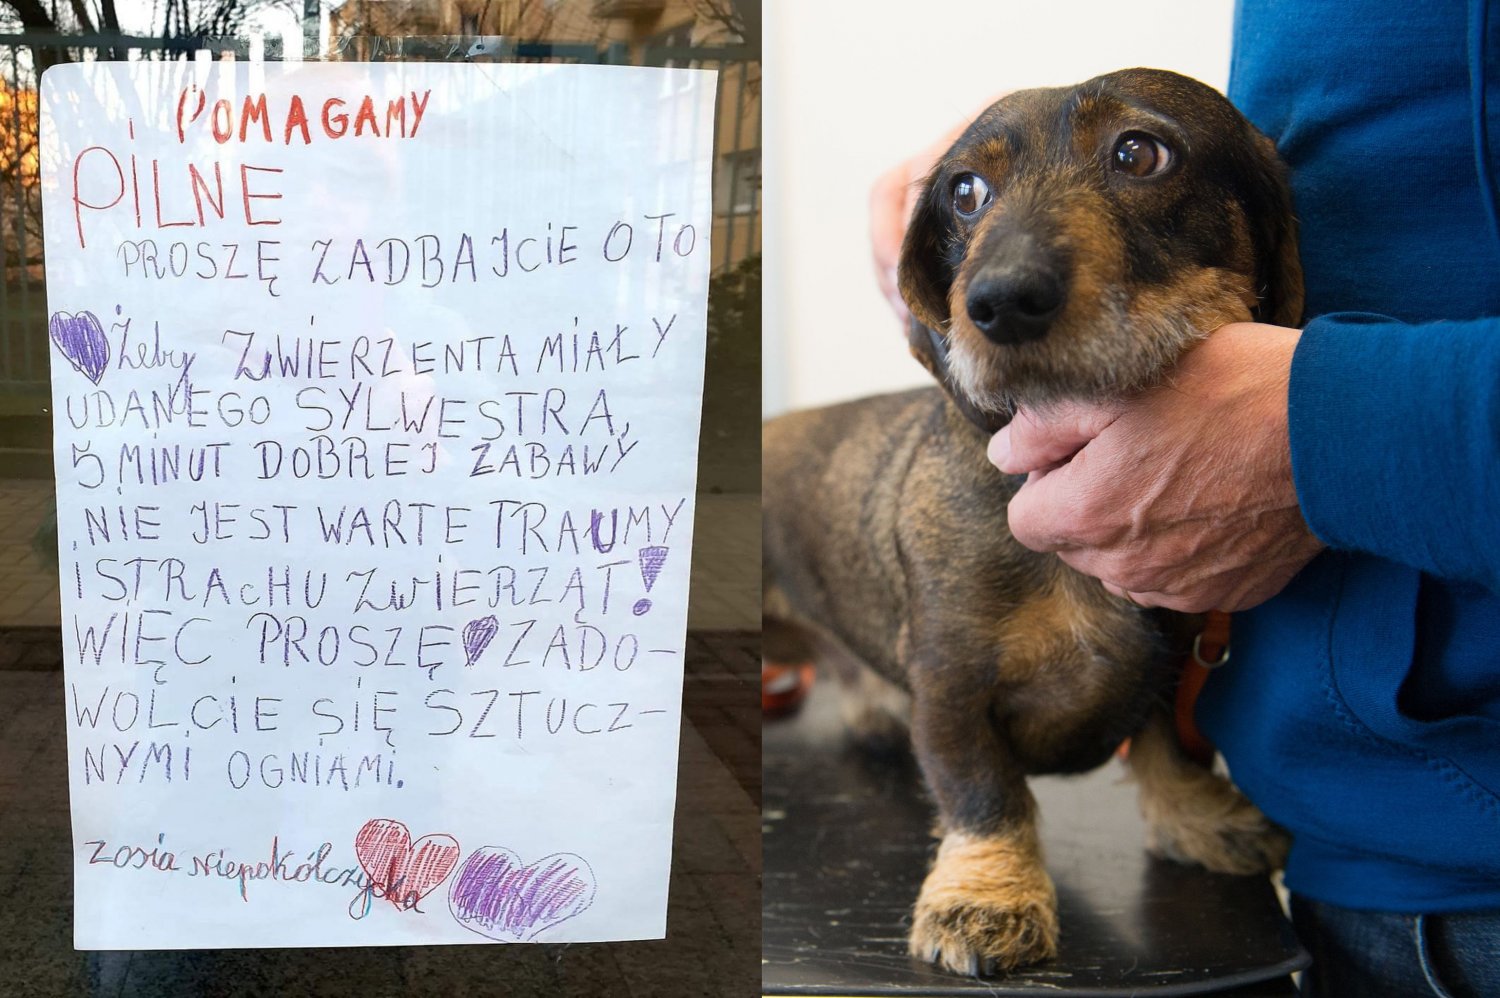 POMAGAMY
PILNE
PROSZĘ ZADBAJCIE O TO
Żeby ZWIERZENTA MIAŁY
UDANEGO SYLWESTRA,
5 MINUT DOBREJ ZABAWY
NIE JEST WARTE TRAUMY
I STRACHU ZWIERZĄT!
WIĘC PROSZĘ ZADO-
WOLCIE SIĘ SZTUCZ-
NYMI OGNIAMI.
Zosia Niepokólczycka